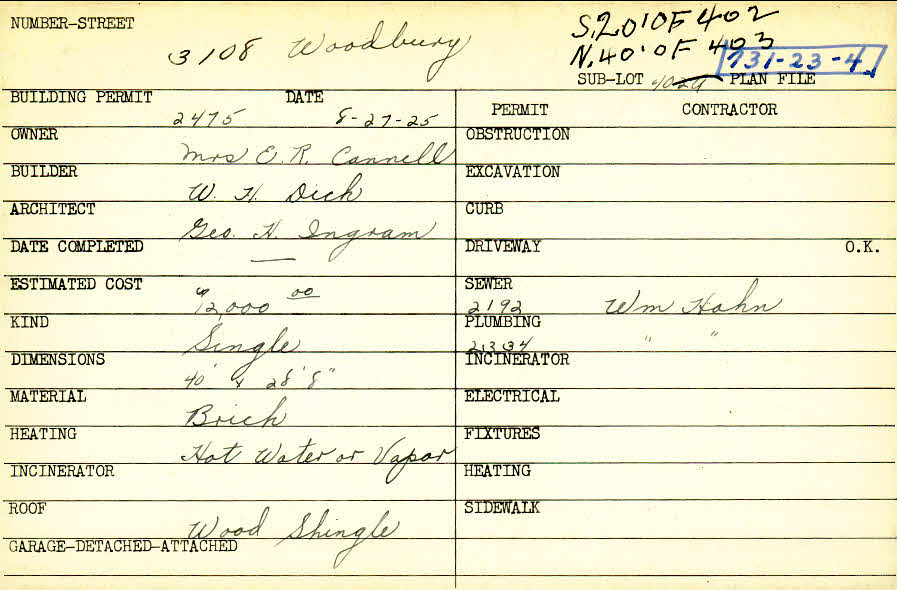 NUMBER-STREET
3108 Woodbury
S. 20' OF 402
N. 40' OF 403
731-23-4
SUB-LOT PLAN FILE
BUILDING PERMIT DATE
2475 8-27-25
OWNER
Mrs E. R. Cannell
BUILDER
W. H. Dick
ARCHITECT
Geo. H. Ingram
DATE COMPLETED
—
ESTIMATED COST
$12,000 00
KIND
Single
DIMENSIONS
40' x 28' 8"
MATERIAL
Brick
HEATING
Hot Water or Vapor
INCINERATOR
ROOF
Wood Shingle
GARAGE-DETACHED-ATTACHED
PERMIT CONTRACTOR
OBSTRUCTION
EXCAVATION
CURB
DRIVEWAY O.K.
SEWER
2192 Wm Hahn
PLUMBING
2334 " "
INCINERATOR
ELECTRICAL
FIXTURES
HEATING
SIDEWALK